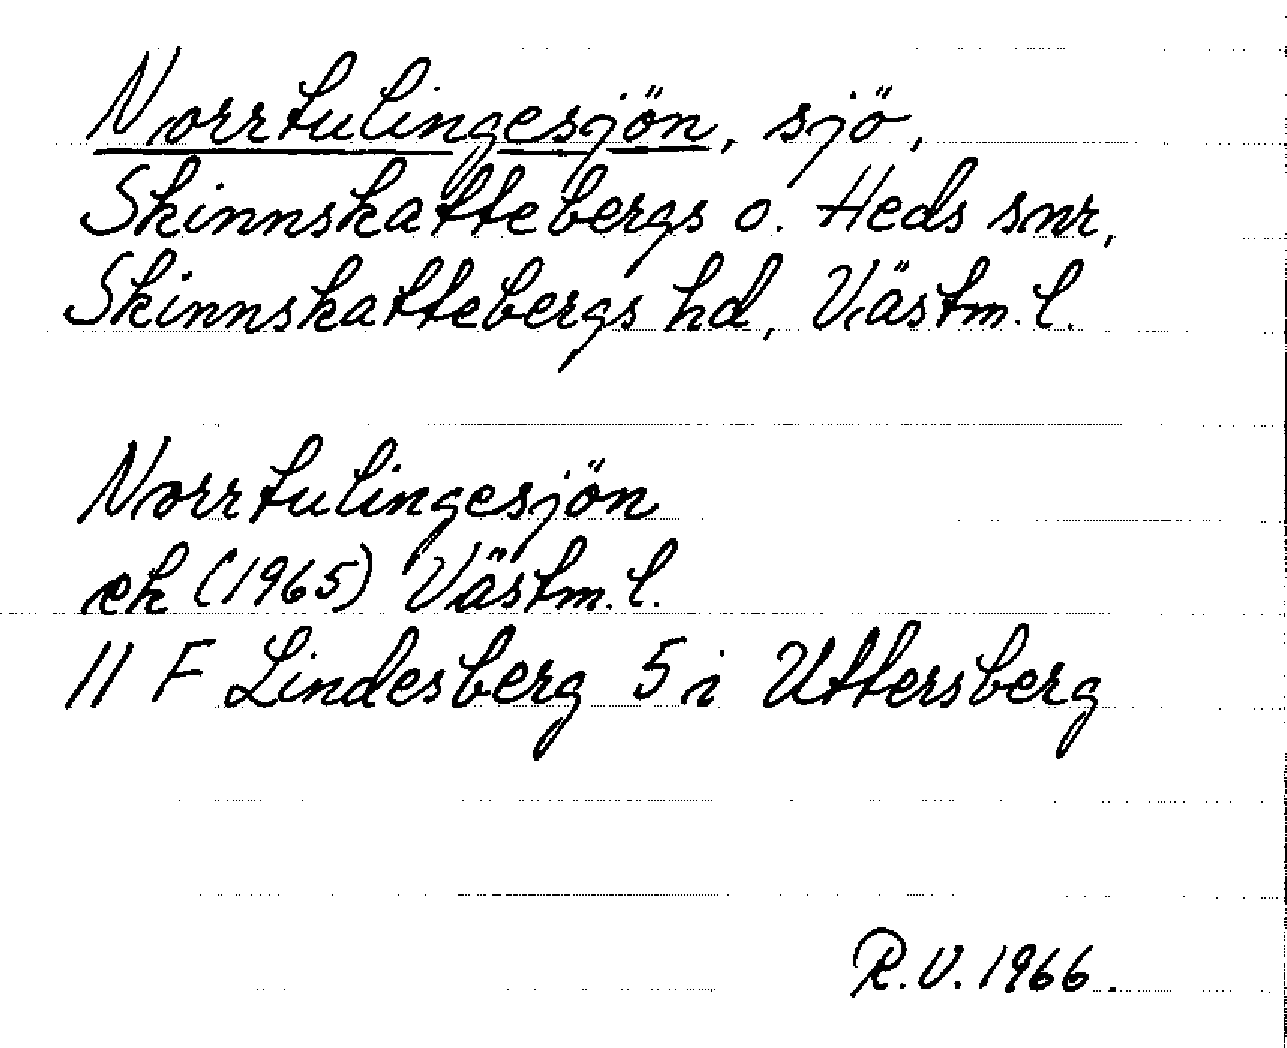 Norrtulingesjön, sjö,
Skinnskattebergs o. Heds snr,
Skinnskattebergs hd, Västm. l.
Norrtulingesjön
ek (1965) Västm. l.
11 F Lindesberg 5 i Uttersberg
R.V. 1966.